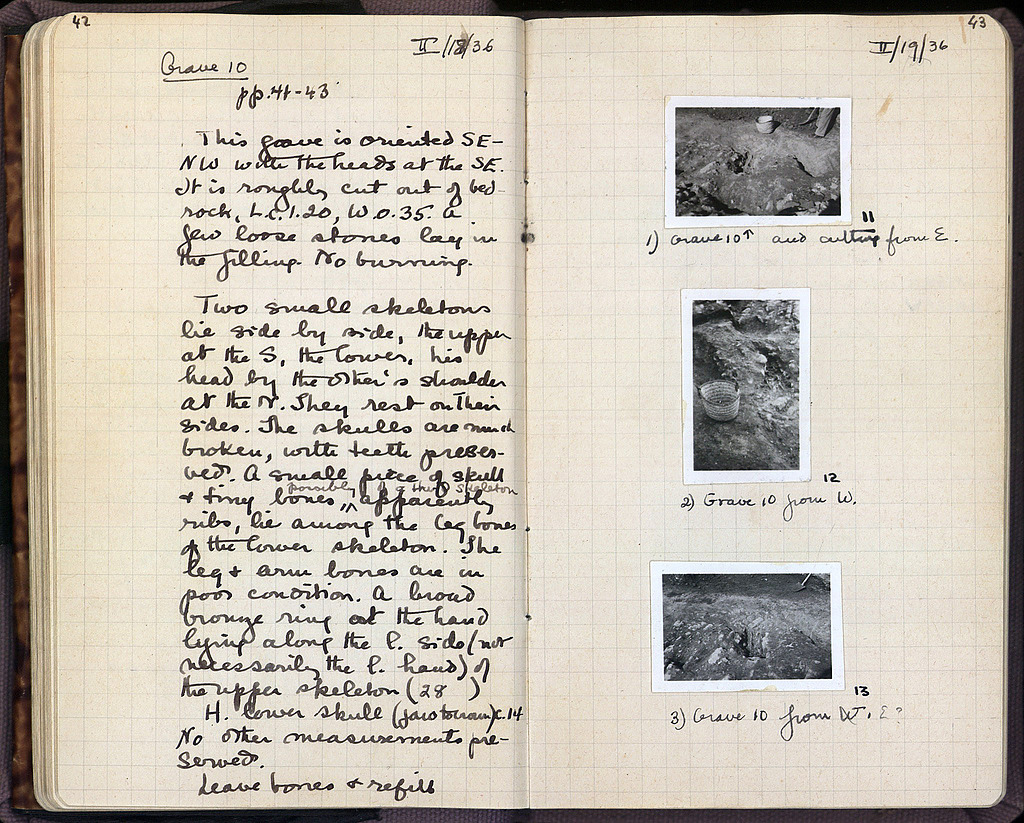 42
II/18/36
Grave 10
pp. 41-43
This grave is oriented SE-
NW with the heads at the SE.
It is roughly cut out of bed-
rock, L.c.1.20, W.0.35. A
few loose stones lay in
the filling. No burning.
Two small skeletons
lie side by side, the upper
at the S, the lower, his
head by the other's shoulder
at the N. They rest on their
sides. The skulls are much
broken, with teeth preser-
ved. A small piece of skull
possibly of a third skeleton
& tiny bones, apparently
ribs, lie among the leg bones
of the lower skeleton. The
leg & arm bones are in
poor condition. A broad
bronze ring at the hand
lying along the l. side (not
necessarily the l. hand) of
the upper skeleton (28 )
H. lower skull (jaw to crown) c.14
No other measurements pre-
served.
Leave bones & refill
43
II/19/36
11
1) Grave 10↑ and cutting from E.
12
2) Grave 10 from W.
13
3) Grave 10 from E?